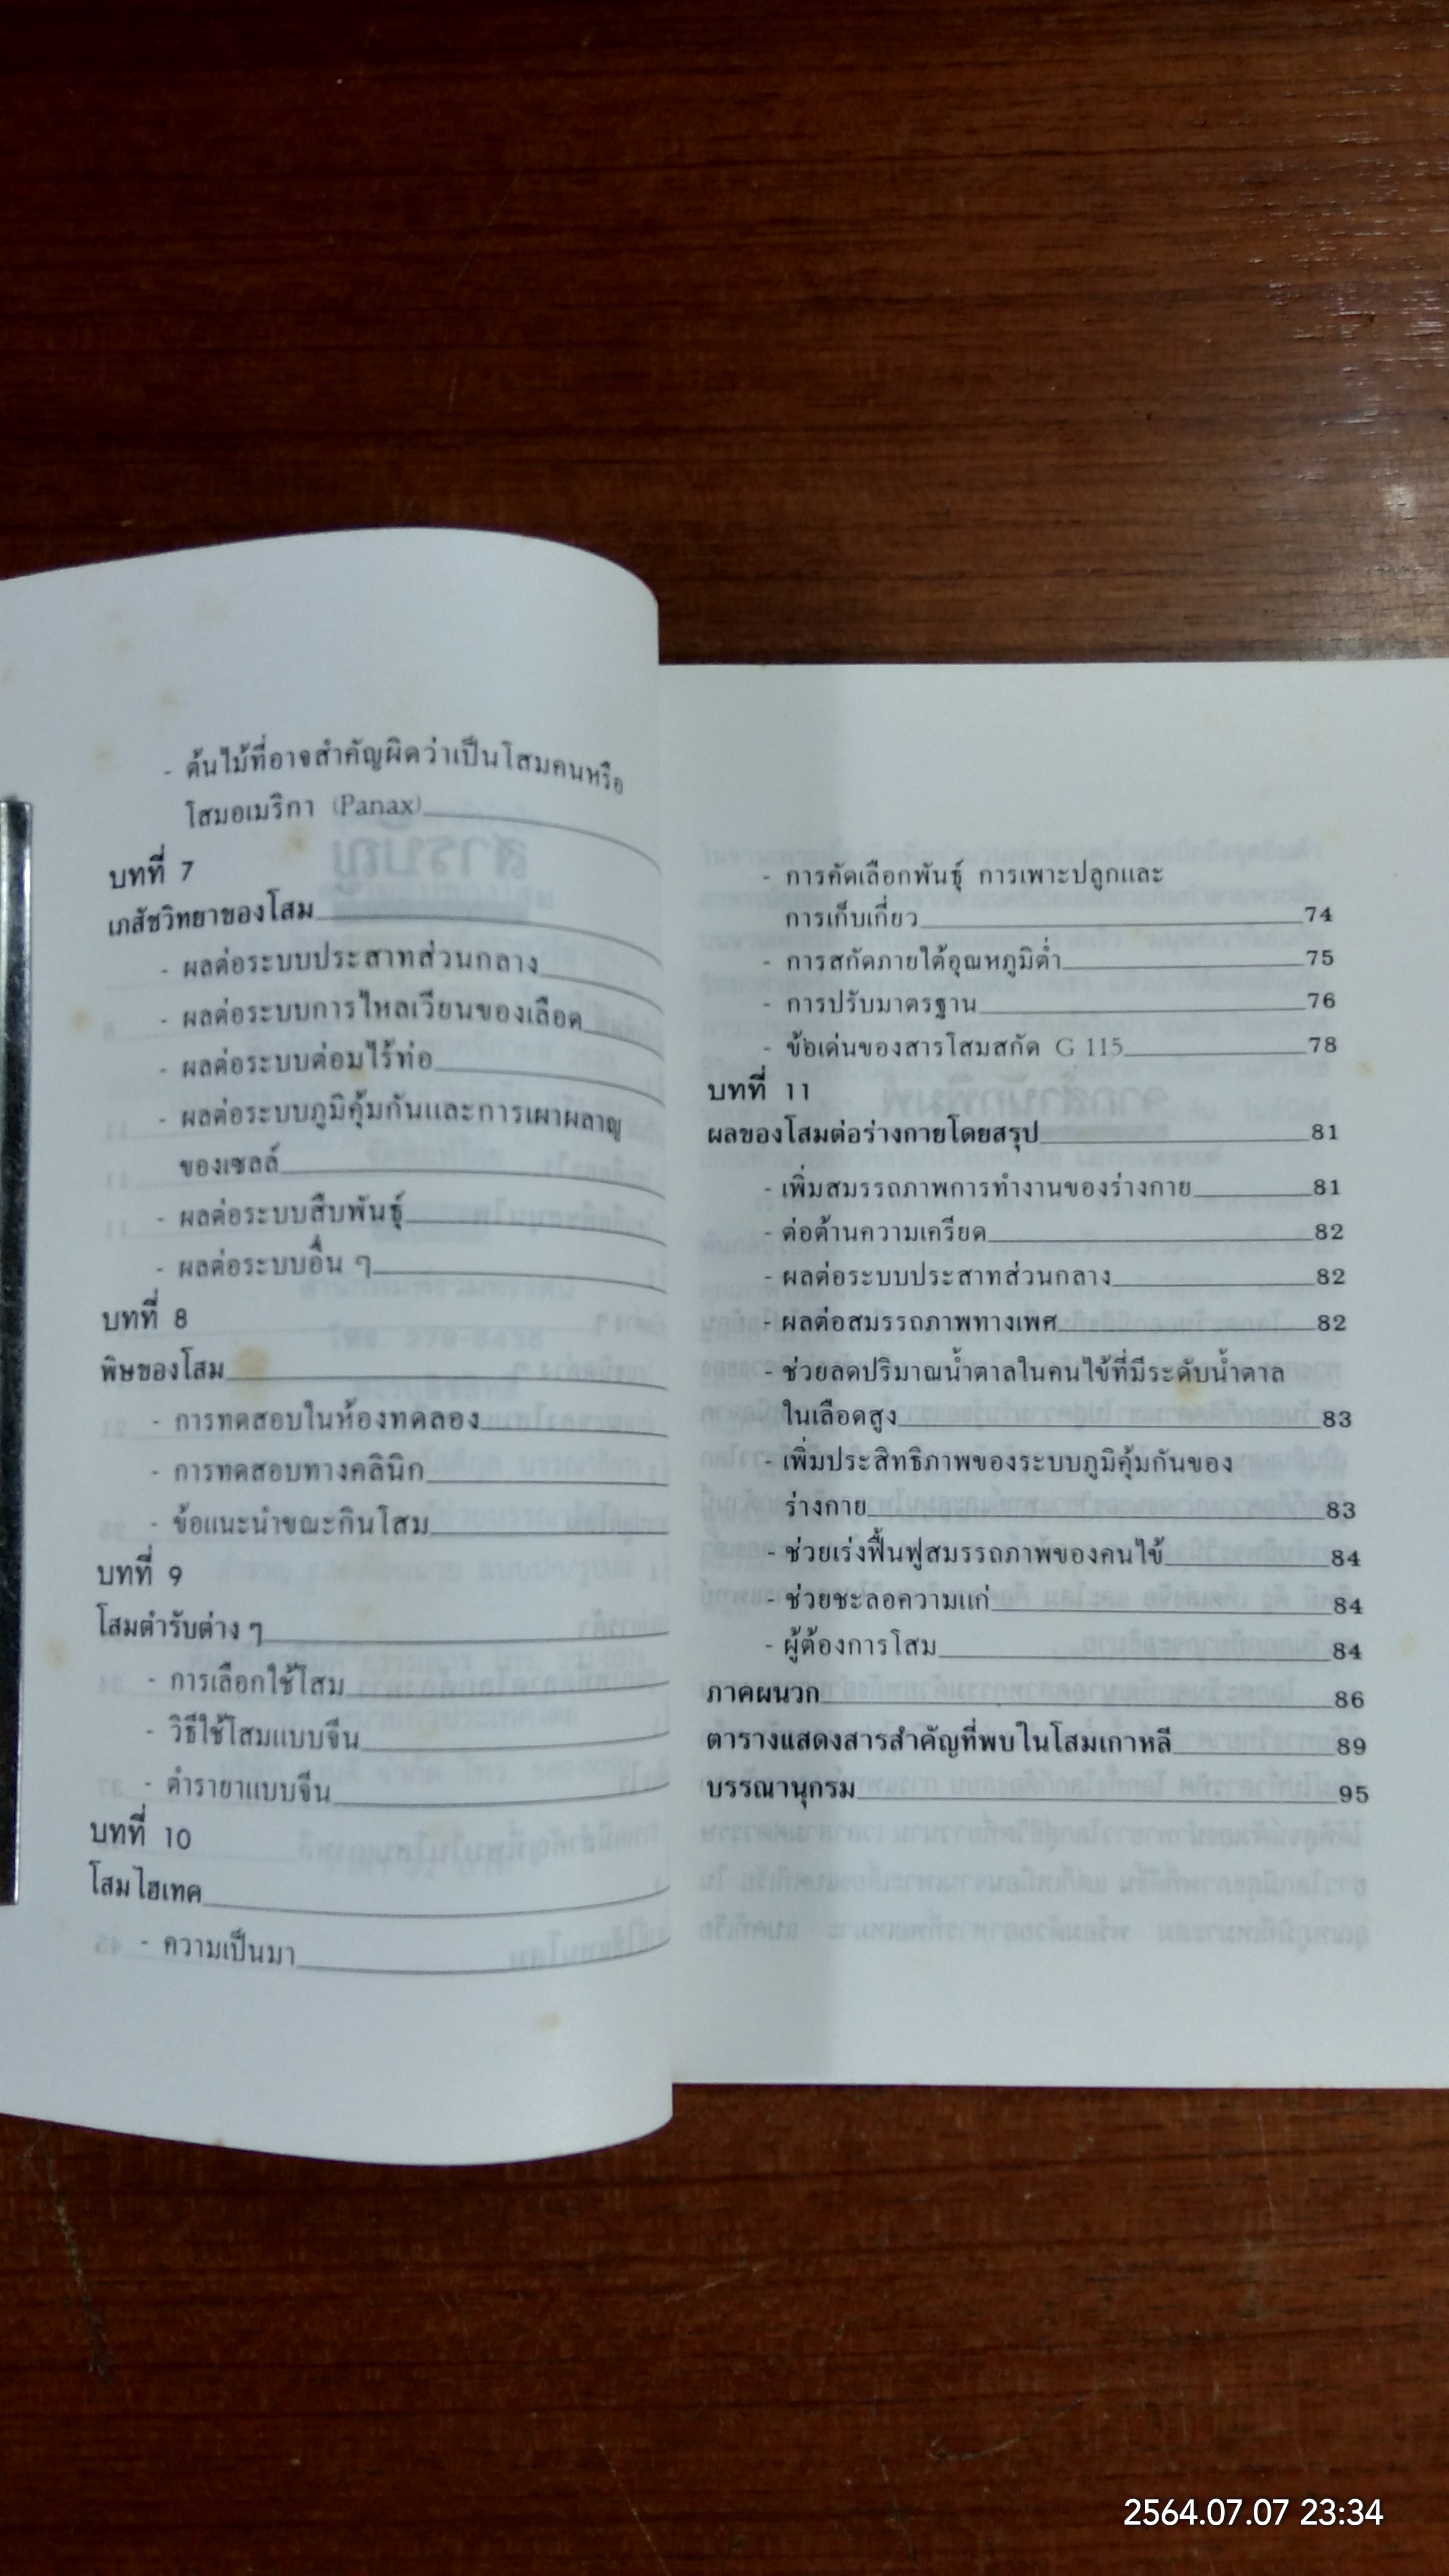 - ต้นไม้ที่อาจสำคัญผิดว่าเป็นโสมคนหรือ
โสมอเมริกา (Panax)
บทที่ 7
เภสัชวิทยาของโสม
- ผลต่อระบบประสาทส่วนกลาง
- ผลต่อระบบการไหลเวียนของเลือด
- ผลต่อระบบต่อมไร้ท่อ
- ผลต่อระบบภูมิคุ้มกันและการเผาผลาญ
ของเซลล์
- ผลต่อระบบสืบพันธุ์
- ผลต่อระบบอื่น ๆ
บทที่ 8
พิษของโสม
- การทดสอบในห้องทดลอง
- การทดสอบทางคลินิก
- ข้อแนะนำขณะกินโสม
บทที่ 9
โสมตำรับต่าง ๆ
- การเลือกใช้โสม
- วิธีใช้โสมแบบจีน
- ตำรายาแบบจีน
บทที่ 10
โสมไฮเทค
- ความเป็นมา
- การคัดเลือกพันธุ์ การเพาะปลูกและ
การเก็บเกี่ยว 74
- การสกัดภายใต้อุณหภูมิต่ำ 75
- การปรับมาตรฐาน 76
- ข้อเด่นของสารโสมสกัด G 115 78
บทที่ 11
ผลของโสมต่อร่างกายโดยสรุป 81
- เพิ่มสมรรถภาพการทำงานของร่างกาย 81
- ต่อต้านความเครียด 82
- ผลต่อระบบประสาทส่วนกลาง 82
- ผลต่อสมรรถภาพทางเพศ 82
- ช่วยลดปริมาณน้ำตาลในคนไข้ที่มีระดับน้ำตาล
ในเลือดสูง 83
- เพิ่มประสิทธิภาพของระบบภูมิคุ้มกันของ
ร่างกาย 83
- ช่วยเร่งฟื้นฟูสมรรถภาพของคนไข้ 84
- ช่วยชะลอความแก่ 84
- ผู้ต้องการโสม 84
ภาคผนวก 86
ตารางแสดงสารสำคัญที่พบในโสมเกาหลี 89
บรรณานุกรม 95
2564.07.07 23:34